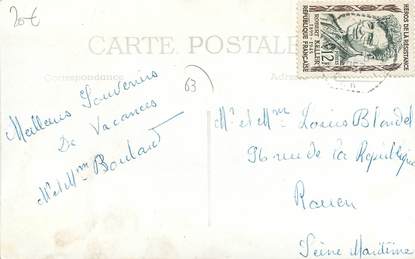 20€
CARTE POSTALE
Correspondance
63
HÉROS DE LA RÉSISTANCE
ROBERT KELLER
1899-1945
12F
RÉPUBLIQUE FRANÇAISE
Meilleurs Souvenirs
De Vacances
Mr et Mme Boulard
Mr et Mme Louis Blondel
96 rue de la République
Rouen
Seine Maritime